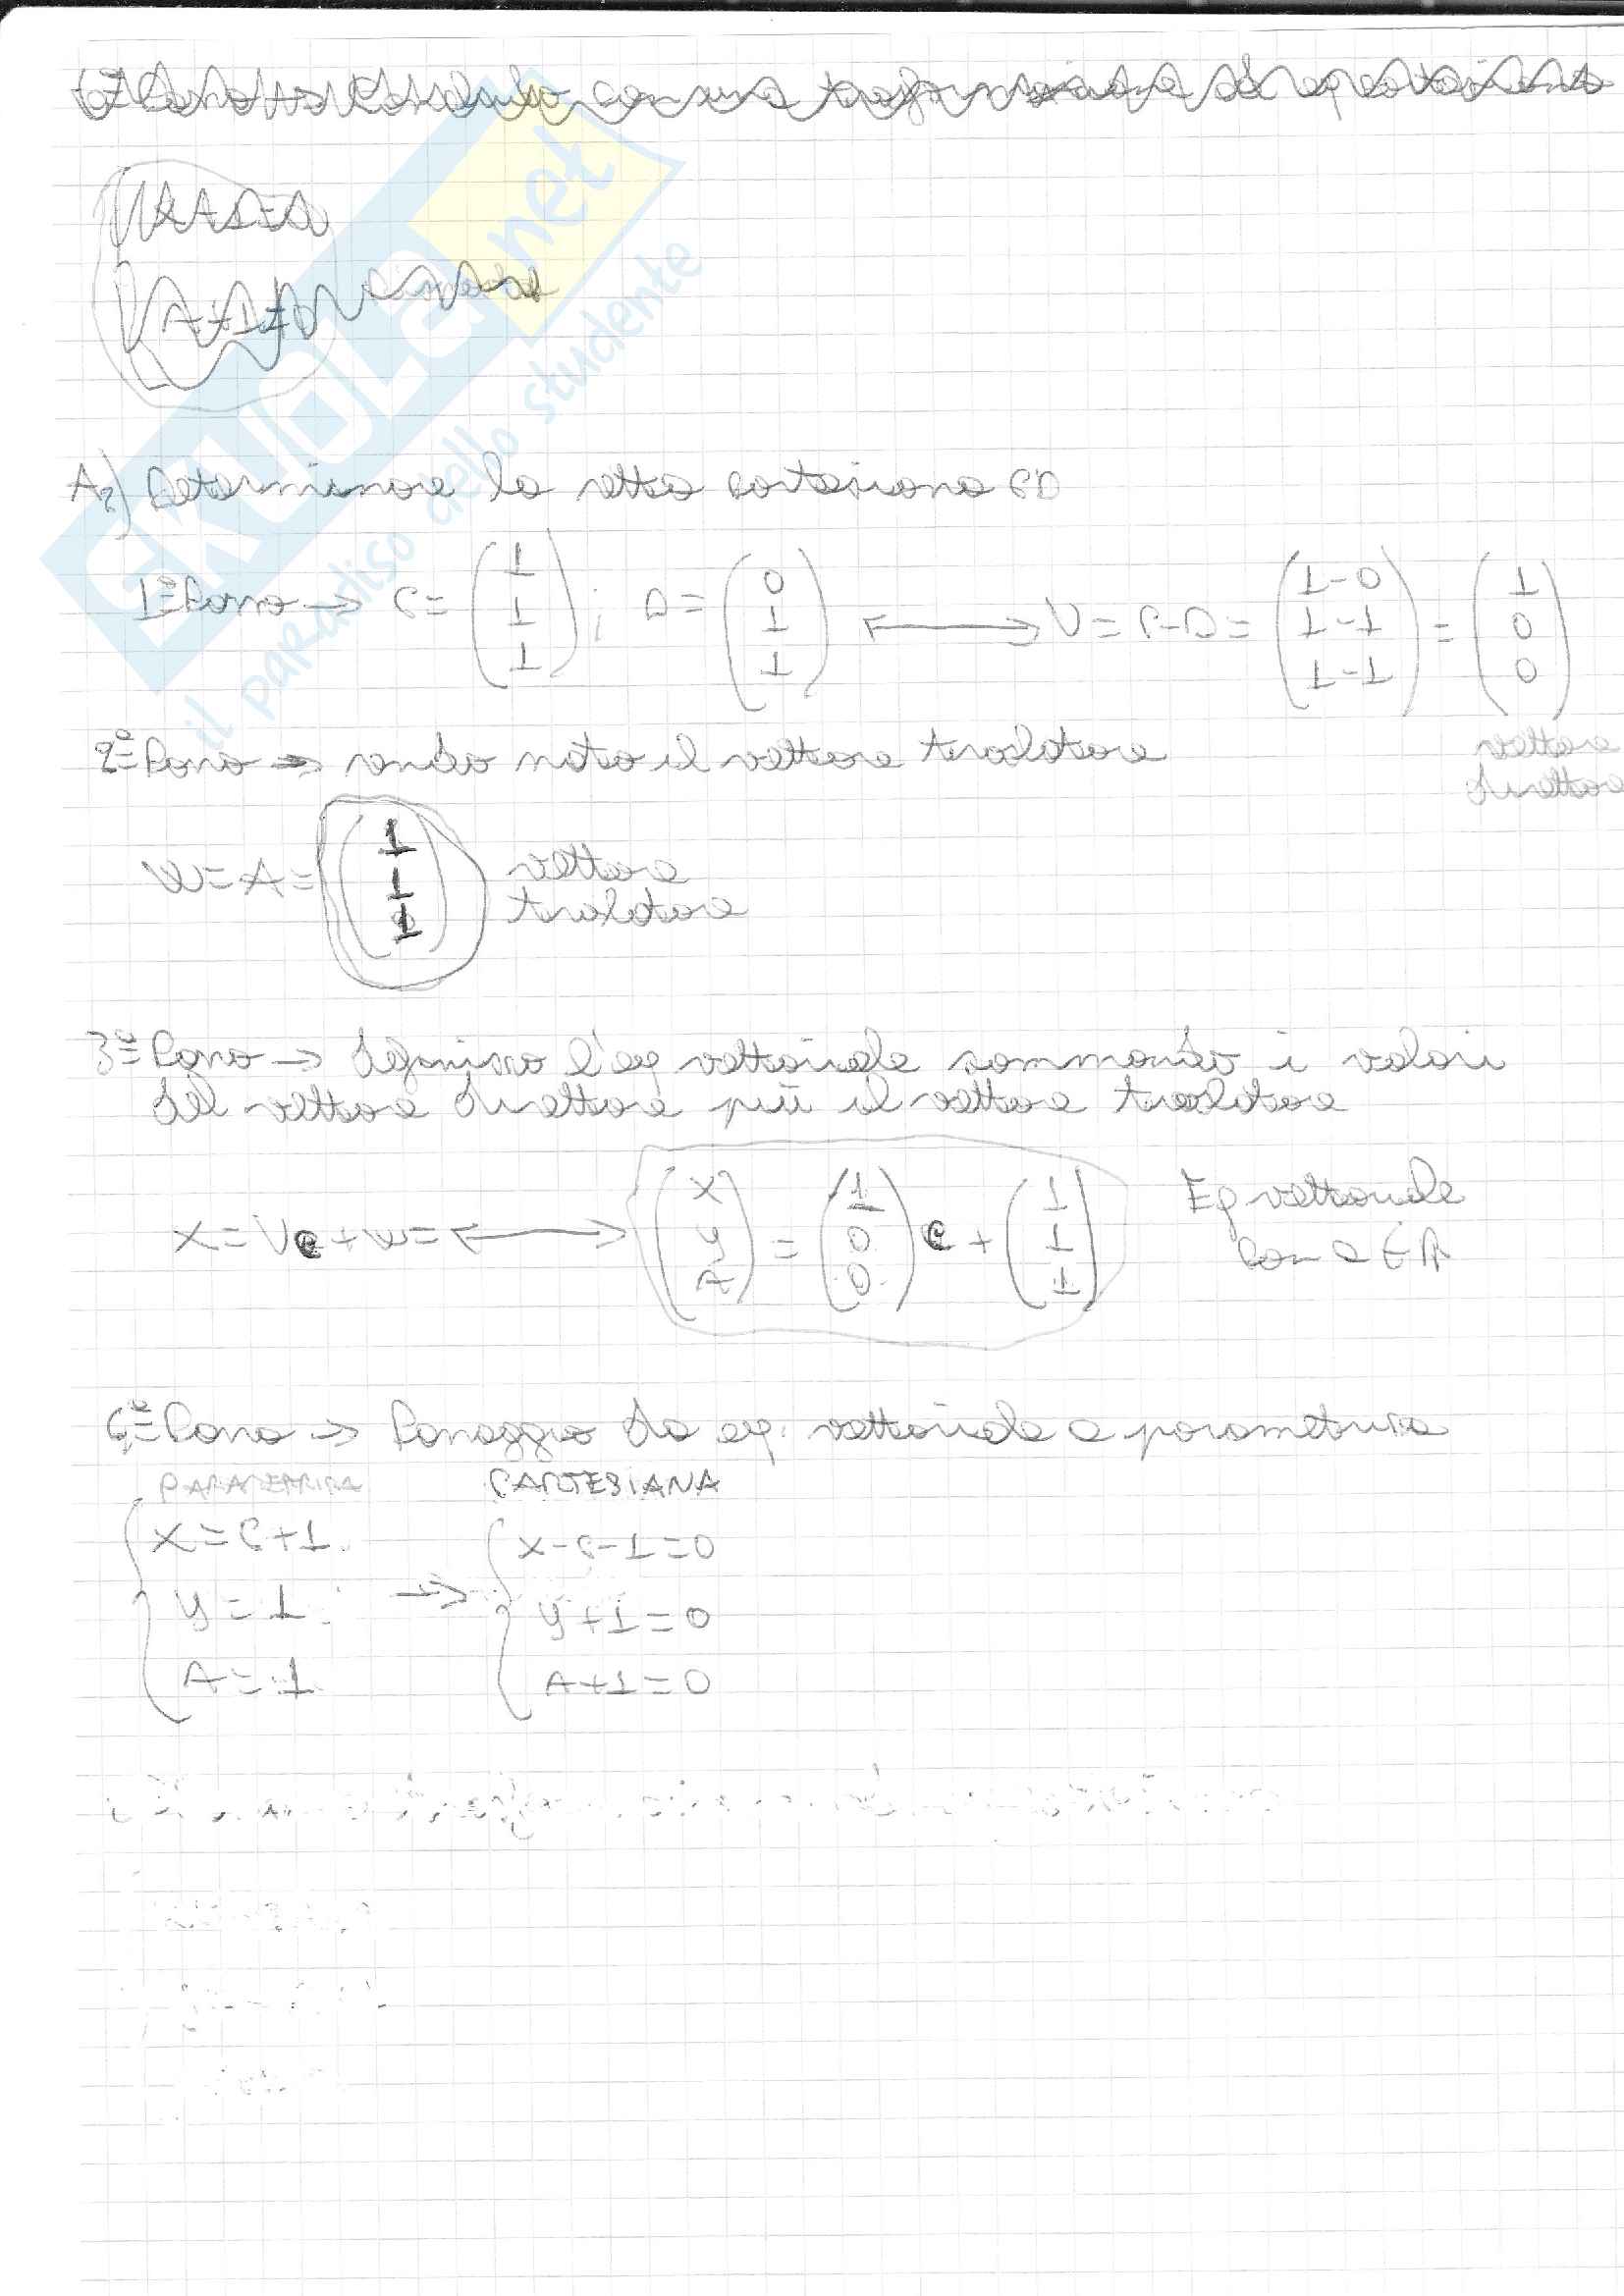 SKUOLA.net
il paradiso dello studente
A2) Determinare la retta cartesiana CD
1º Passo → C = (1 1 1) ; D = (0 1 1) ⟼ V = C-D = (1-0 1-1 1-1) = (1 0 0)
vettore
direttore
2º Passo → rendo noto il vettore traslatore
W = A = (1 1 1) vettore
traslatore
3º Passo → definisco l'eq vettoriale sommando i valori
del vettore direttore più il vettore traslatore
X = Vc + W = ⟼ (x y z) = (1 0 0) c + (1 1 1) Eq vettoriale
con c ∈ R
4º Passo → Passaggio da eq. vettoriale a parametrica
PARAMETRICA CARTESIANA
x = c+1 x-c-1=0
y = 1 → y+1=0
z = 1 z+1=0